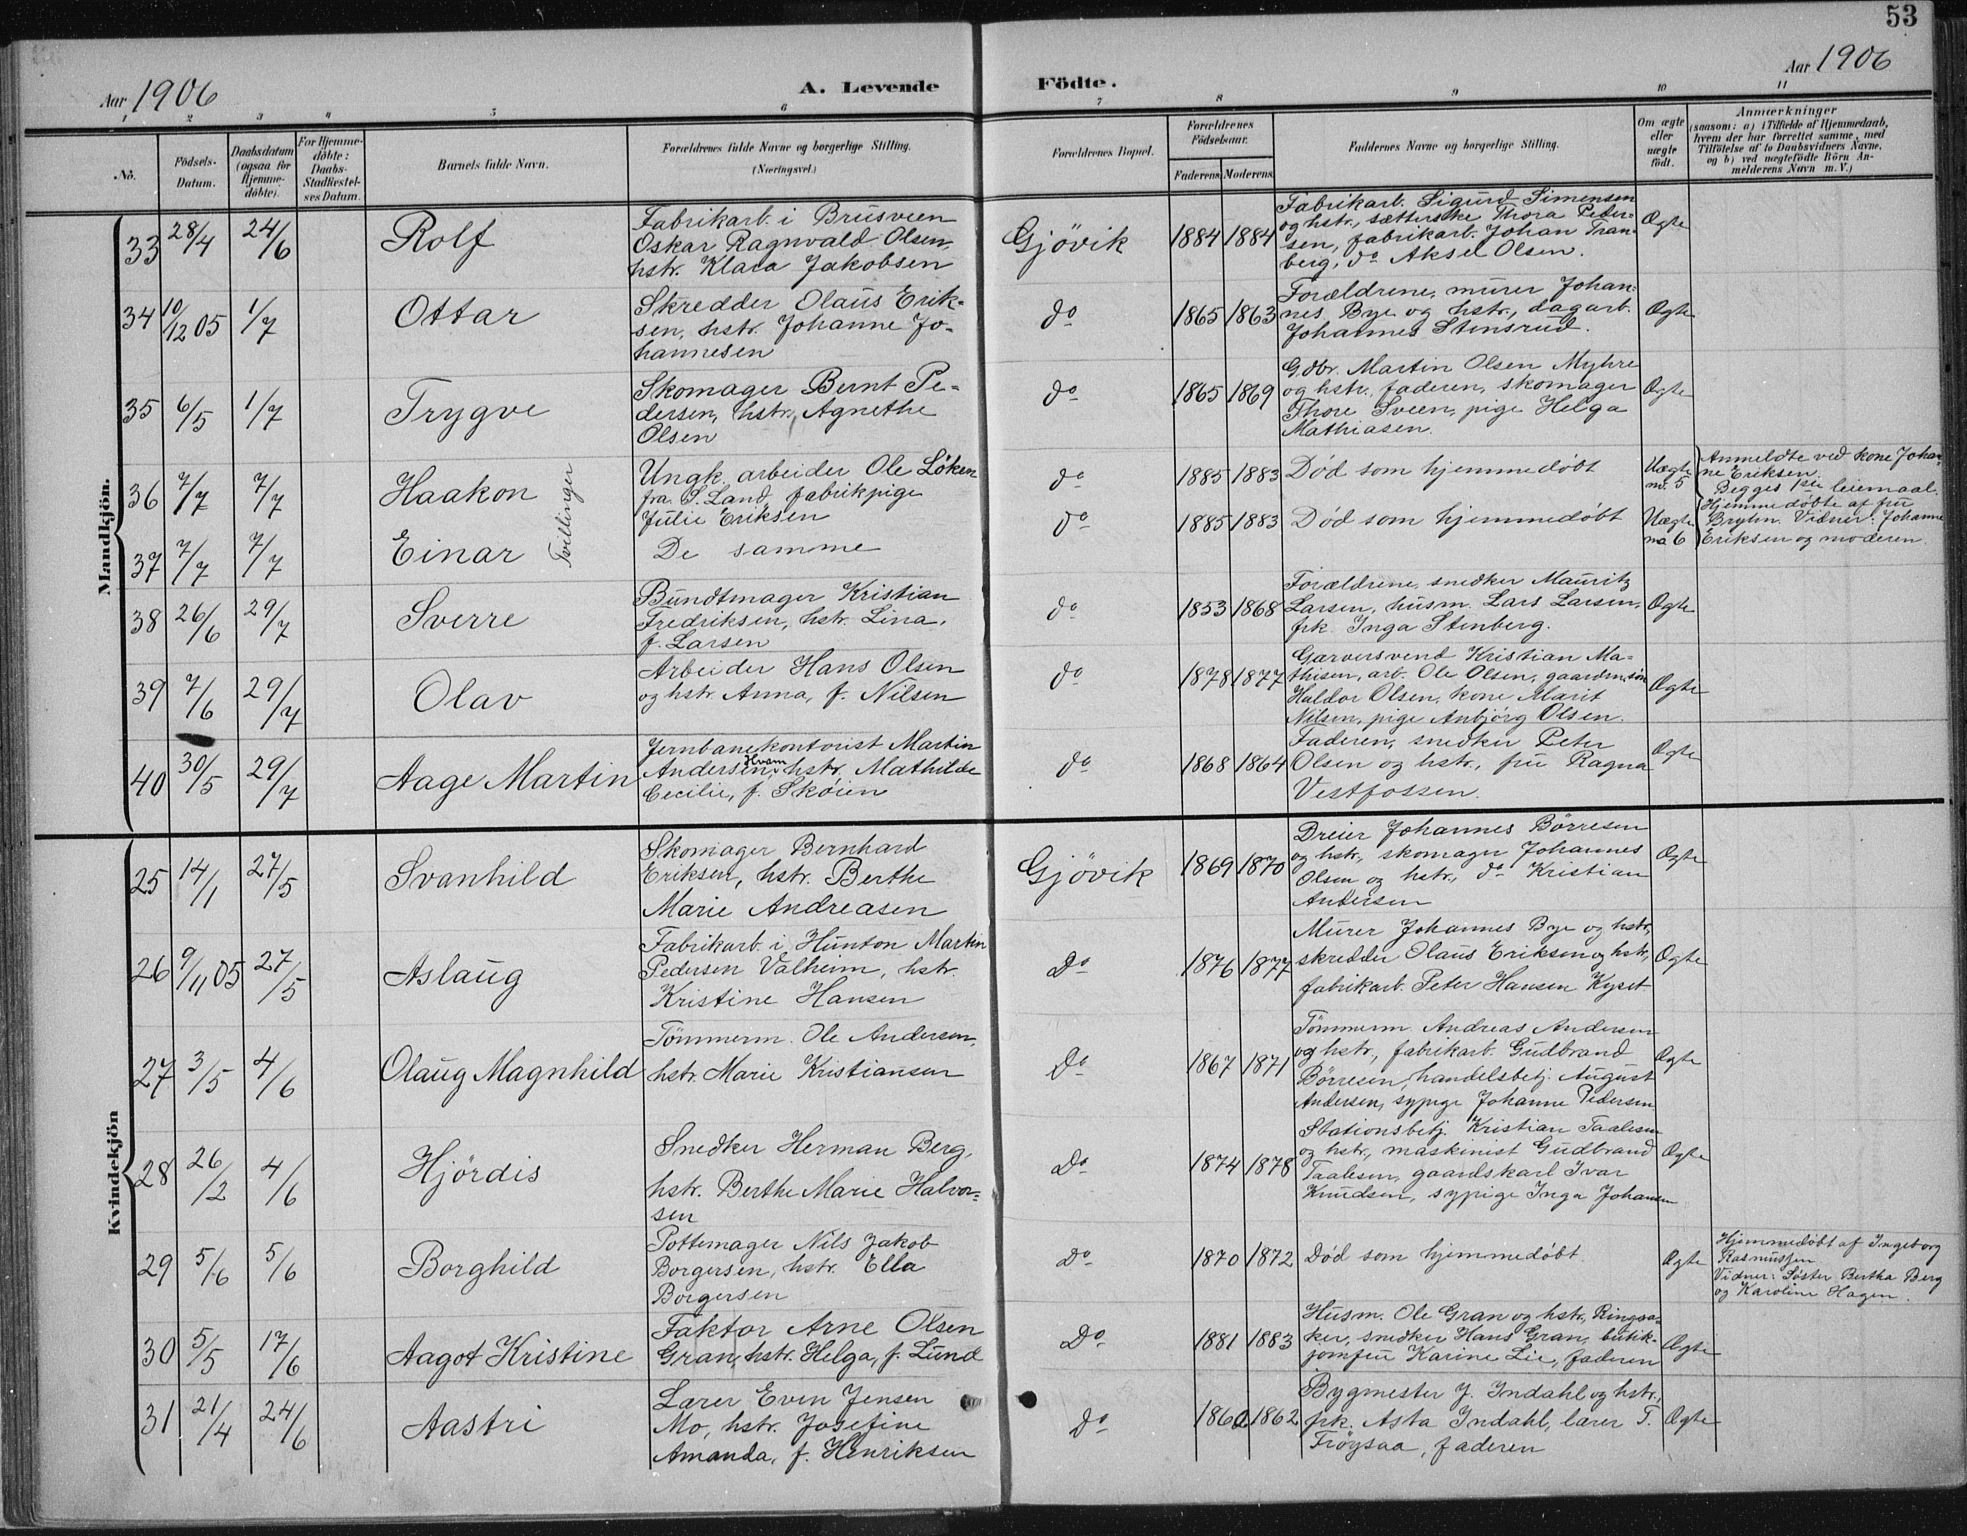 53
Aar 1906
A. Levende Födte.
Aar 1906
1 2 3 4 5 6 7 8 9 10 11
No.
Födsels-
Datum.
Daabsdatum
(ogsaa for
Hjemme-
döbte).
For Hjemme-
döbte:
Daabs-
Stadfæstel-
ses Datum.
Barnets fulde Navn.
Forældrenes fulde Navne og borgerlige Stilling.
(Næringsvei.)
Forældrenes Bopæl.
Forældrenes
Födselsaar.
Faderens. Moderens.
Faddernes Navne og borgerlige Stilling.
Om ægte
eller
uægte
født.
Anmærkninger
(saasom: a) i Tilfælde af Hjemmedaab,
hvem der har forrettet samme, med
Tilföielse af to Daabsvidners Navne,
og b) ved uægtefödte Börn An-
melderens Navn m. V.)
Mandkjön.
33 28/4 24/6 Rolf
Fabrikarb. i Brusveen
Oskar Ragnvald Olsen,
hstr. Klara Jakobsen
Gjövik 1884 1884
Fabrikarb. Sigurd Simensen
og hstr., sætterske Thora Peder-
sen, fabrikarb. Johan Tran-
berg, do Aksel Olsen.
Ægte
34 10/12 05 1/7 Ottar
Skredder Olaus Erik-
sen, hstr. Johanne Jo-
hannesen
do 1865 1863
Forældrene, murer Johan-
nes Bye og hstr., dagarb.
Johannes Stensrud.
Ægte
35 6/5 1/7 Trygve
Skomager Bernt Pe-
dersen, hstr. Agnethe
Olsen
do 1865 1869
Gdbr. Martin Olsen Myhre
og hstr. faderen, skomager
Thore Sveen, pige Helga
Mathiasen.
Ægte
36 7/7 7/7 Haakon
Tvillinger
Ungk. arbeider Ole Löken
fra S. Land, fabrikpige
Julie Eriksen
do 1885 1883 Död som hjemmedöbt
Uægte
no. 5
Anmeldte ved kone Johan-
ne Eriksen.
Begges 1ste leiemaal.
Hjemmedöbte af fru
Brylin. Vidner: Johanne
Eriksen og moderen.
37 7/7 7/7 Einar
De samme
do 1885 1883 Död som hjemmedöbt
Uægte
no 6
38 26/6 29/7 Sverre
Bundtmager Kristian
Fredriksen, hstr. Lina,
f. Larsen
do 1853 1868
Forældrene, snedker Mauritz
Larsen, husm. Lars Larsen,
frk. Inga Stenberg.
Ægte
39 7/6 29/7 Olav
Arbeider Hans Olsen
og hstr. Anna, f. Nilsen
do 1878 1877
Garversvend Kristian Ma-
thisen, arb. Ole Olsen, gaardm.sön
Haldor Olsen, kone Marit
Nilsen, pige Anbjörg Olsen.
Ægte
40 30/5 29/7 Aage Martin
Jernbanekontorist Martin
Andersen Hvam, hstr. Mathilde
Cecilie, f. Sköien
do 1868 1864
Faderen, snedker Peter
Olsen og hstr., fru Ragna
Vestfossen.
Ægte
Kvindekjön
25 14/1 27/5 Svanhild
Skomager Bernhard
Eriksen, hstr. Berthe
Marie Andreasen
Gjövik 1869 1870
Dreier Johannes Börresen
og hstr., skomager Johannes
Olsen og hstr., do Kristian
Andersen
Ægte
26 9/11 05 27/5 Aslaug
Fabrikarb. i Hunton Martin
Pedersen Valheim, hstr.
Kristine Hansen
Do 1876 1877
Murer Johannes Bye og hstr,
skredder Olaus Eriksen og hstr.,
fabrikarb. Peter Hansen Kyset
Ægte
27 3/5 4/6 Olaug Magnhild
Tömmerm. Ole Andersen,
hstr. Marie Kristiansen
Do 1867 1871
Tömmerm. Andreas Andersen
og hstr., fabrikarb. Gudbrand
Börresen, handelsbetj. August
Andersen, sypige Johanne Pedersen
Ægte
28 26/2 4/6 Hjördis
Snedker Herman Berg,
hstr. Berthe Marie Halvor-
sen
Do 1874 1878
Stationsbetj. Kristian Taalesen
og hstr., maskinist Gudbrand
Taalesen, gaardskarl Ivar
Knudsen, sypige Inga Johansen
Ægte
29 5/6 5/6 Borghild
Pottemager Nils Jakob
Borgersen, hstr. Ella
Borgersen
Do 1870 1872 Död som hjemmedöbt.
Ægte
Hjemmedöbt af Ingeborg
Rasmussen
Vidner: Söster Bertha Berg
og Karoline Hagen.
30 5/5 17/6 Aagot Kristine
Faktor Arne Olsen
Gran, hstr. Helga, f. Lund
Do 1881 1883
Husm. Ole Gran og hstr, Ringsa-
ker, snedker Hans Gran, butik-
jomfru Karine Lie, faderen
Ægte
31 21/4 24/6 Aastri
Lærer Even Jensen
Mo, hstr. Josefine
Amanda, f. Henriksen
do 1860 1862
Bygmester J. Indahl og hstr.,
frk. Asta Indahl, lærer T.
Tröysaa, faderen
Ægte